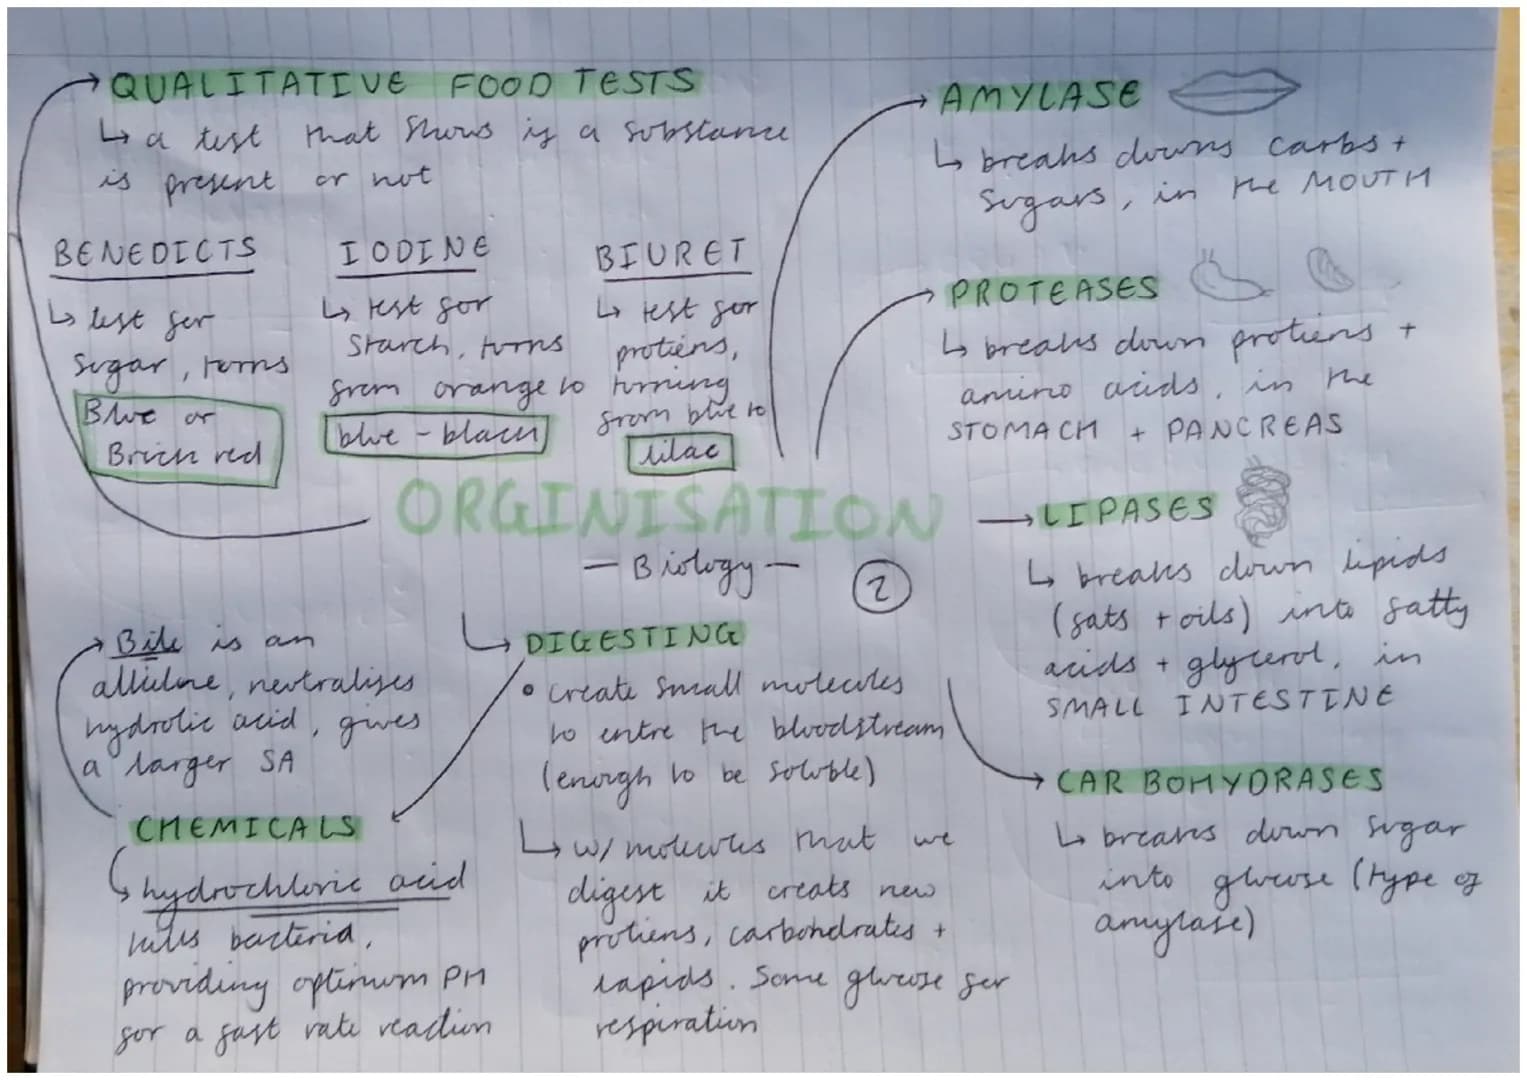 QUALITATIVE FOOD TESTS
↳ a test that shows if a substance
is present or not
BENEDICTS
↳ test for
sugar, turns
Blue or
Brick red
IODINE
↳ test for
starch, turns
from orange to
blue - black
BIURET
↳ test for
protiens,
turning
from blue to
lilac
AMYLASE
↳ breaks downs carbs +
sugars, in the MOUTH
PROTEASES
↳ breaks down protiens +
amino acids, in the
STOMACH + PANCREAS
ORGINISATION
- Biology -
2
LIPASES
↳ breaks down lipids
(fats + oils) into fatty
acids + glycerol, in
SMALL INTESTINE
CARBOHYDRASES
↳ breaks down sugar
into glucose (type of
amylase)
DIGESTING
• create small molecules
to entre the bloodstream
(enough to be soluble)
↳ w/ molecules that we
digest it creats new
protiens, carbohdrates +
lapids. Some glucose for
respiration
Bile is an
neutralises
hydrolic acid, gives
a larger SA
CHEMICALS
↳ hydrochloric acid
kills bacteria,
providing optimum PH
for a fast rate reaction